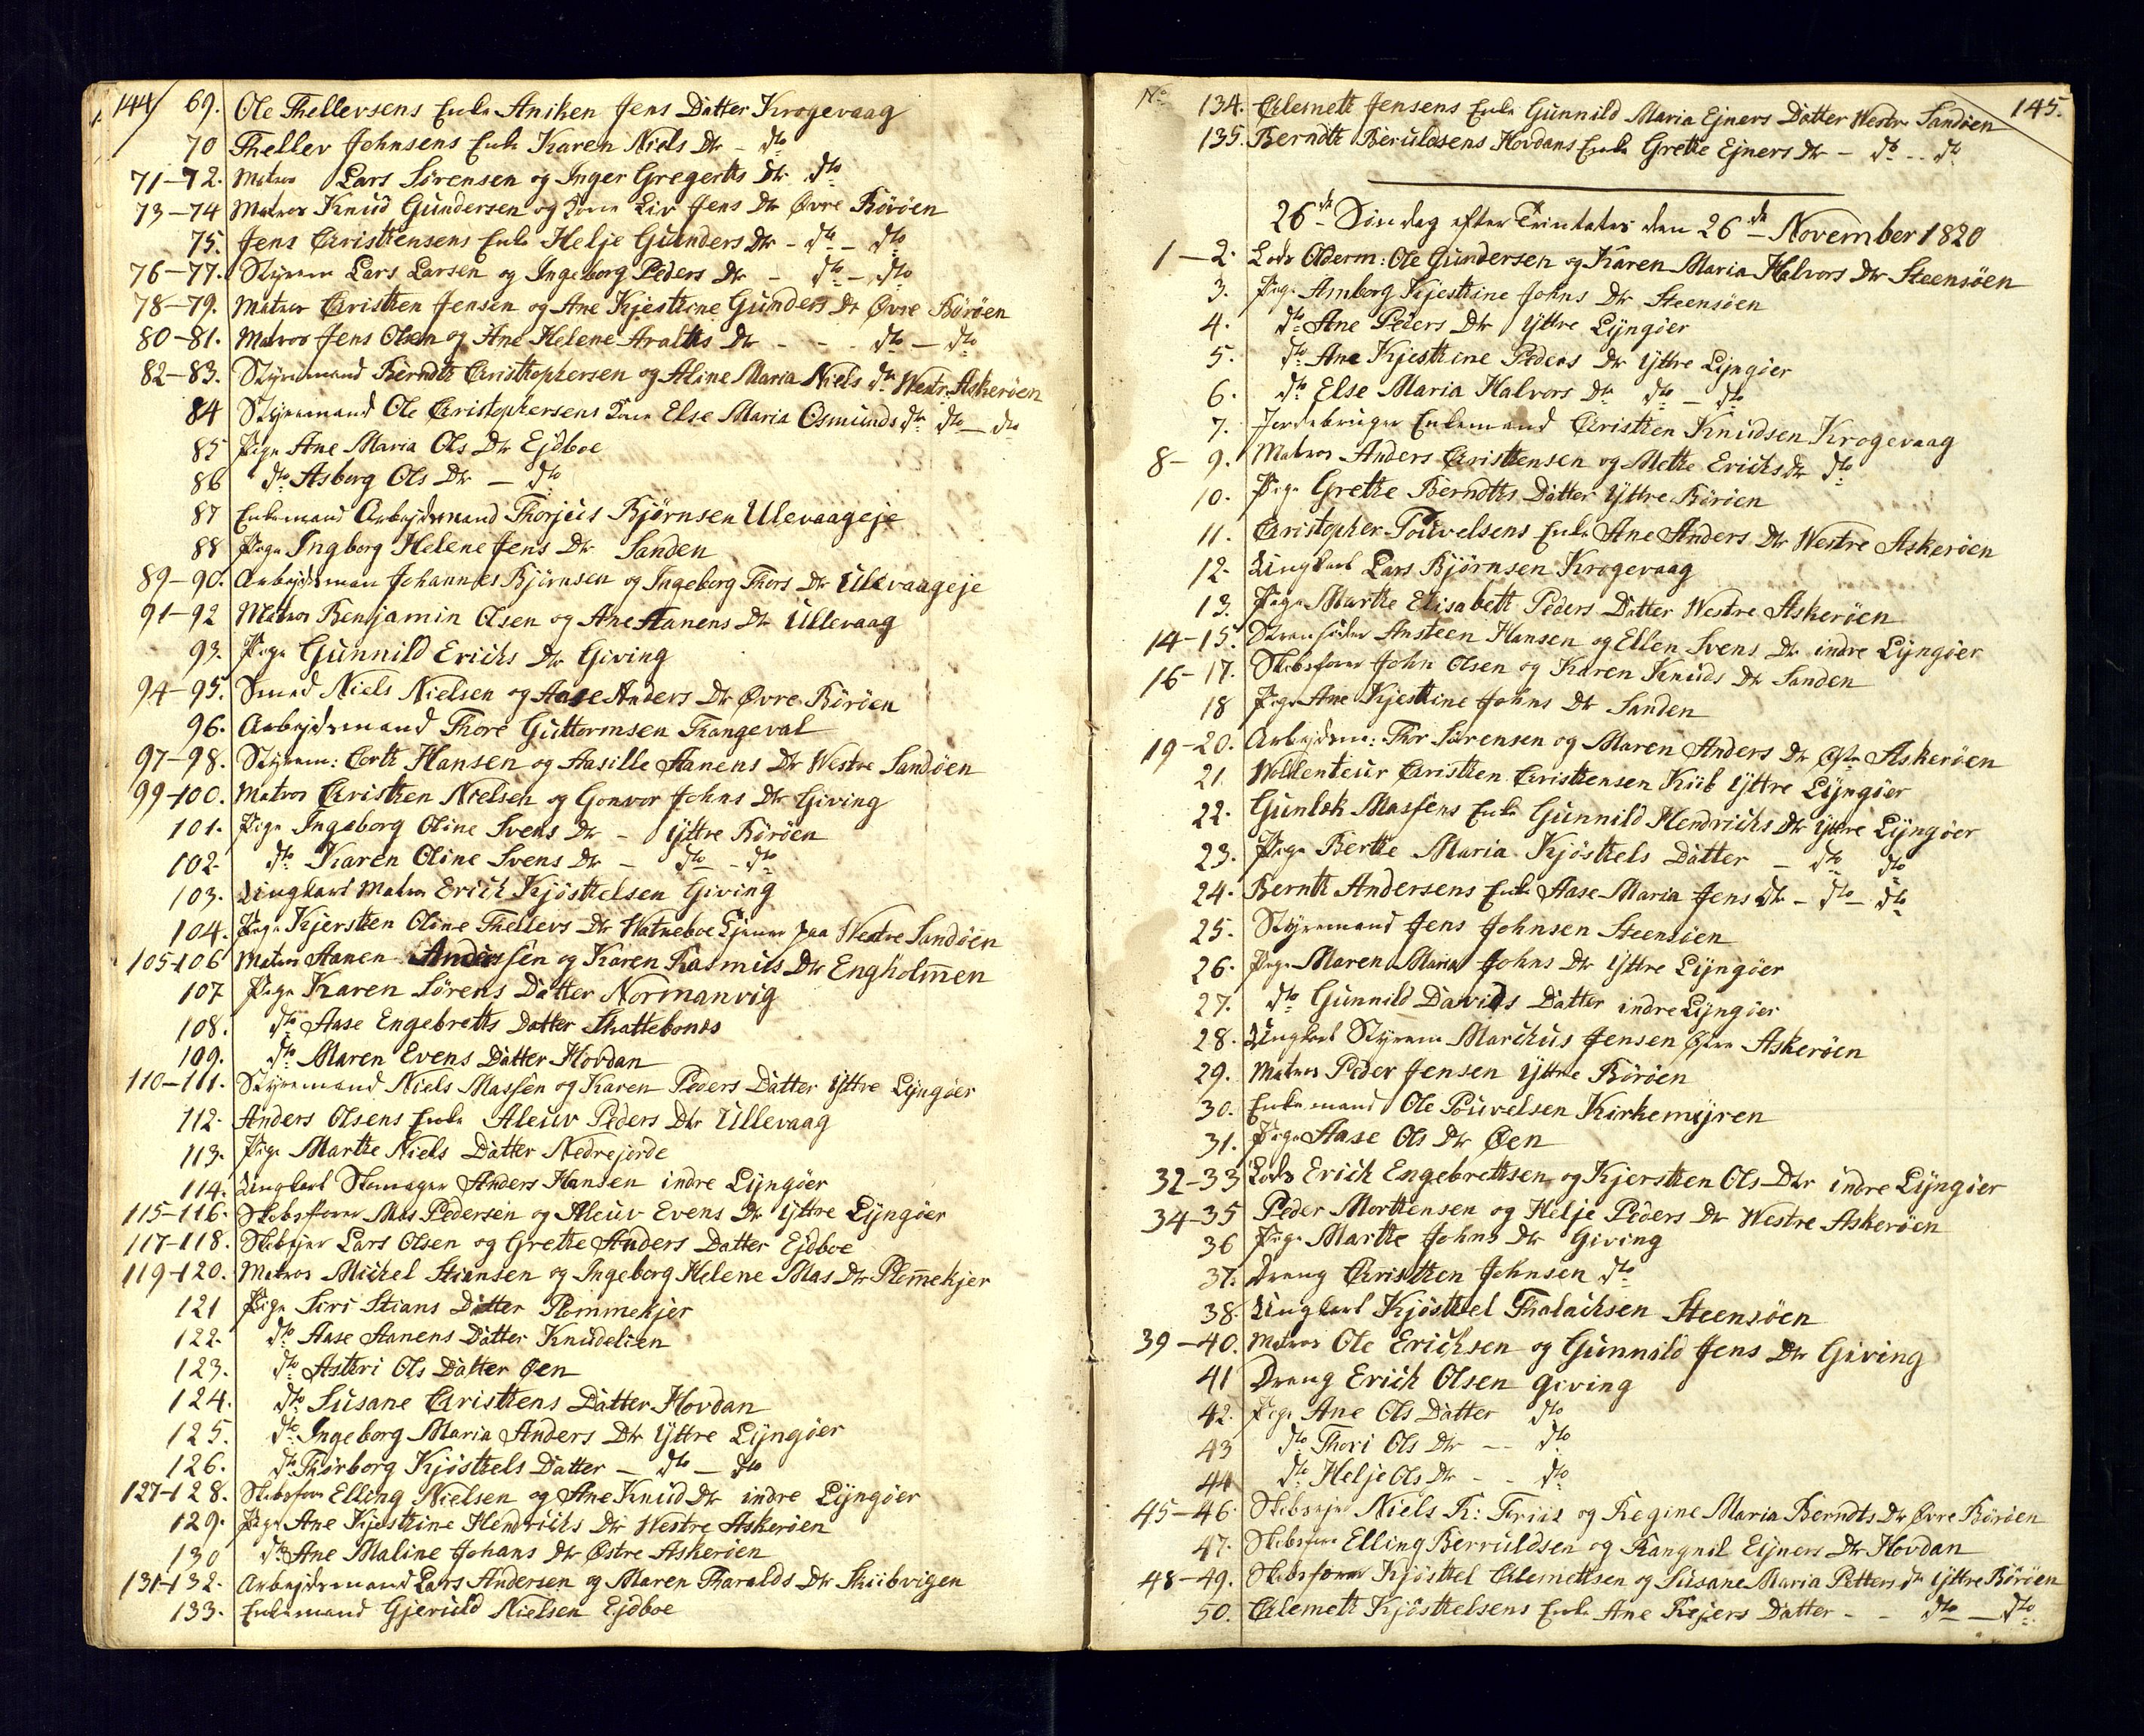 144 69. Ole Thellevsens Enke Aniken Jens Datter Krogevaag
70 Thellev Johnsens Enke Karen Niels Dtr - dto
71-72. Matros Lars Sørensen og Inger Gregerths Dtr dto
73-74 Matros Knud Gundersen og Kone Liv Jens Dtr Øvre Börøen
75. Jens Christensens Enke Helje Gunders Dtr - dto - dto
76-77. Styrem Lars Larsen og Ingeborg Peders Dtr - dto - dto
78-79. Matros Christen Jensen og Ane Kjestine Gunders Dr Øvre Börøen
80-81. Matros Jens Olsen og Ane Helene Aralths Dtr - - dto - dto
82-83. Styremand Berndth Christhophersen og Aline Maria Niels dtr Westr. Askerøen
84 Styremand Ole Christophersens Kone Else Maria Osmunds dtr dto - dto
85 Pige Ane Maria Ols Dtr Ejdboe
86 dto Asborg Ols Dtr - dto
87 Enkemand Arbejdsmand Thorjus Bjørnsen Ulevaageje
88 Pige Ingborg Helene Jens Dtr Sanden
89-90. Arbejdsman Johannes Bjørnsen og Ingeborg Thors Dtr Ulevaageje
91-92 Matros Benjamin Olsen og Ane Aanens Dtr Ullevaag
93. Pige Gunnild Erichs Dtr Giving
94-95. Smed Niels Nielsen og Aase Anders Dtr Øvre Börøen
96. Arbejdsmand Thore Guttormsen Thangeval
97-98. Styrem: Corth Hansen og Aasille Aanens Dtr Westre Sandøen
99-100. Matros Christen Nielsen og Gonvor Johns Dtr Giving
101. Pige Ingeborg Oline Svens Dtr - Yttre Börøen
102. dto Karen Oline Svens Dtr - dto - dto
103. Ungkarl Matros Erich Kjösthelsen Giving
104. Pige Kjersten Oline Thellevs Dtr Watneboe tjener paa Westre Sandøen
105-106 Matros Aanen Andersen og Karen Rasmus Dtr Engholmen
107 Pige Karen Sörens Datter Normanvig
108. dto Aase Engebreths Datter Skattebonds
109. dto Maren Evens Datter Hovdan
110-111. Styremand Niels Massen og Karen Peders Datter Yttre Lyngøer
112. Anders Olsens Enke Aleuv Peders Dtr Ullevaag
113. Pige Marthe Niels Datter Nedrejorde
114. Ungkarl Skomager Anders Hansen indre Lyngøer
115-116. Skibsfører Mas Pedersen og Aleuv Evens Dr Yttre Lyngøer
117-118. Skibejer Lars Olsen og Grethe Anders Datter Ejdboe
119-120. Matros Michel Stiansen og Ingeborg Helene Mas Dtr Plommekjer
121 Pige Siri Stians Datter Plommekjer
122. dto Aase Aanens Datter Knudelien
123. dto Astri Ols Datter Øen
124. dto Susane Christens Datter Hovdan
125. dto Ingeborg Maria Anders Dtr Yttre Lyngøer
126. dto Thorborg Kjösthels Datter - dto - dto
127-128. Skibsfør Elling Nielsen og Ane Knud Dtr indre Lyngøer
129. Pige Ane Kjestine Hendrichs Dtr Westre Askerøen
130 dto Ane Maline Johans Dtr Østre Askerøen
131-132. Arbejdsmand Lars Andersen og Maren Tharalds Dtr Skiibvigen
133. Enkemand Gjeruld Nielsen Ejdboe
No 134. Clemeth Jensens Enke Gunnild Maria Ejners Datter Westre Sandøen 145.
135. Berndth Beruldsens Hovdans Enke Grethe Ejners Dtr - dto - dto
26de Søndag efter Trinitates den 26de November 1820
1-2. Lods Olderm: Ole Gundersen og Karen Maria Halvors Dtr Steensøen
3. Pige Amborg Kjestine Johns Dtr Steensøen
4. dto Ane Peders Dtr Yttre Lyngøer
5. dto Ane Kjestine Peders Dr Yttre Lyngøer
6. dto Else Maria Halvors Dtr dto - dto
7. Jordebruger Enkemand Christen Knudsen Krogevaag
8-9. Matros Anders Christensen og Methe Erichs dtr dto
10. Pige Grethe Berndths Datter Yttre Börøen
11. Christopher Pouvelsens Enke Ane Anders Dtr Westre Askerøen
12. Ungkarl Lars Bjørnsen Krogevaag
13. Pige Marthe Elisabeth Peders Datter Westre Askerøen
14-15. Stransidder Ansteen Hansen og Ellen Svens Dtr indre Lyngøer
16-17. Skibsfører John Olsen og Karen Knuds Dtr Sanden
18 Pige Ane Kjestine Johns Dtr Sanden
19-20. Arbejdsm: Thor Sörensen og Maren Anders Dtr Østr Askerøen
21. Wollenteur Christen Christensen Kiib Yttre Lyngøer
22. Gunlek Massens Enke Gunnild Hendrichs Dtr Yttre Lyngøer
23. Pige Berthe Maria Kjösthels Datter - dto dto
24. Bernth Andersens Enke Aase Maria Jens Dtr - dto - dto
25. Styremand Jens Johnsen Steensøen
26. Pige Maren Maria Johns Dtr Yttre Lyngøer
27. dto Gunnild Davids Datter indre Lyngøer
28. Ungkarl Styrem Marchus Jensen Østre Askerøen
29. Matros Peder Jensen Yttre Börøen
30. Enkemand Ole Pouvelsen Kirkemyren
31. Pige Aase Ols Dtr Øen
32-33 Lods Erich Engebrethsen og Kjersten Ols Dtr indre Lyngøer
34-35 Peder Morthensen og Helje Peders Dtr Westre Askerøen
36 Pige Marthe Johns Dtr Giving
37. Dreng Christen Johnsen dto
38. Ungkarl Kjösthel Thalachsen Steensøen
39-40. Matros Ole Erichsen og Gunnild Jens Dtr Giving
41 Dreng Erich Olsen Giving
42. Pige Ane Ols Datter dto
43 dto Thori Ols Dtr - - dto
44 dto Helje Ols Dtr - - dto
45-46. Skibsejer Niels R: Friis og Regine Maria Berndts Dr Øvre Börøen
47. Skibsfør Elling Berruldsen og Rangnil Ejners Dtr Hovdan
48-49. Skibsfører Kjösthel Clemethsen og Susane Maria Petters dtr Yttre Börøen
50. Clemeth Kjösthelsens Enke Ane Rejers Datter - - dto - dto